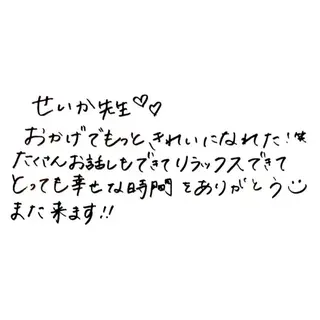 せいか先生♡♡
おかげでもっときれいになれた！笑
たくさんお話しもできてリラックスできて
とっても幸せな時間をありがとう☺
また来ます!!